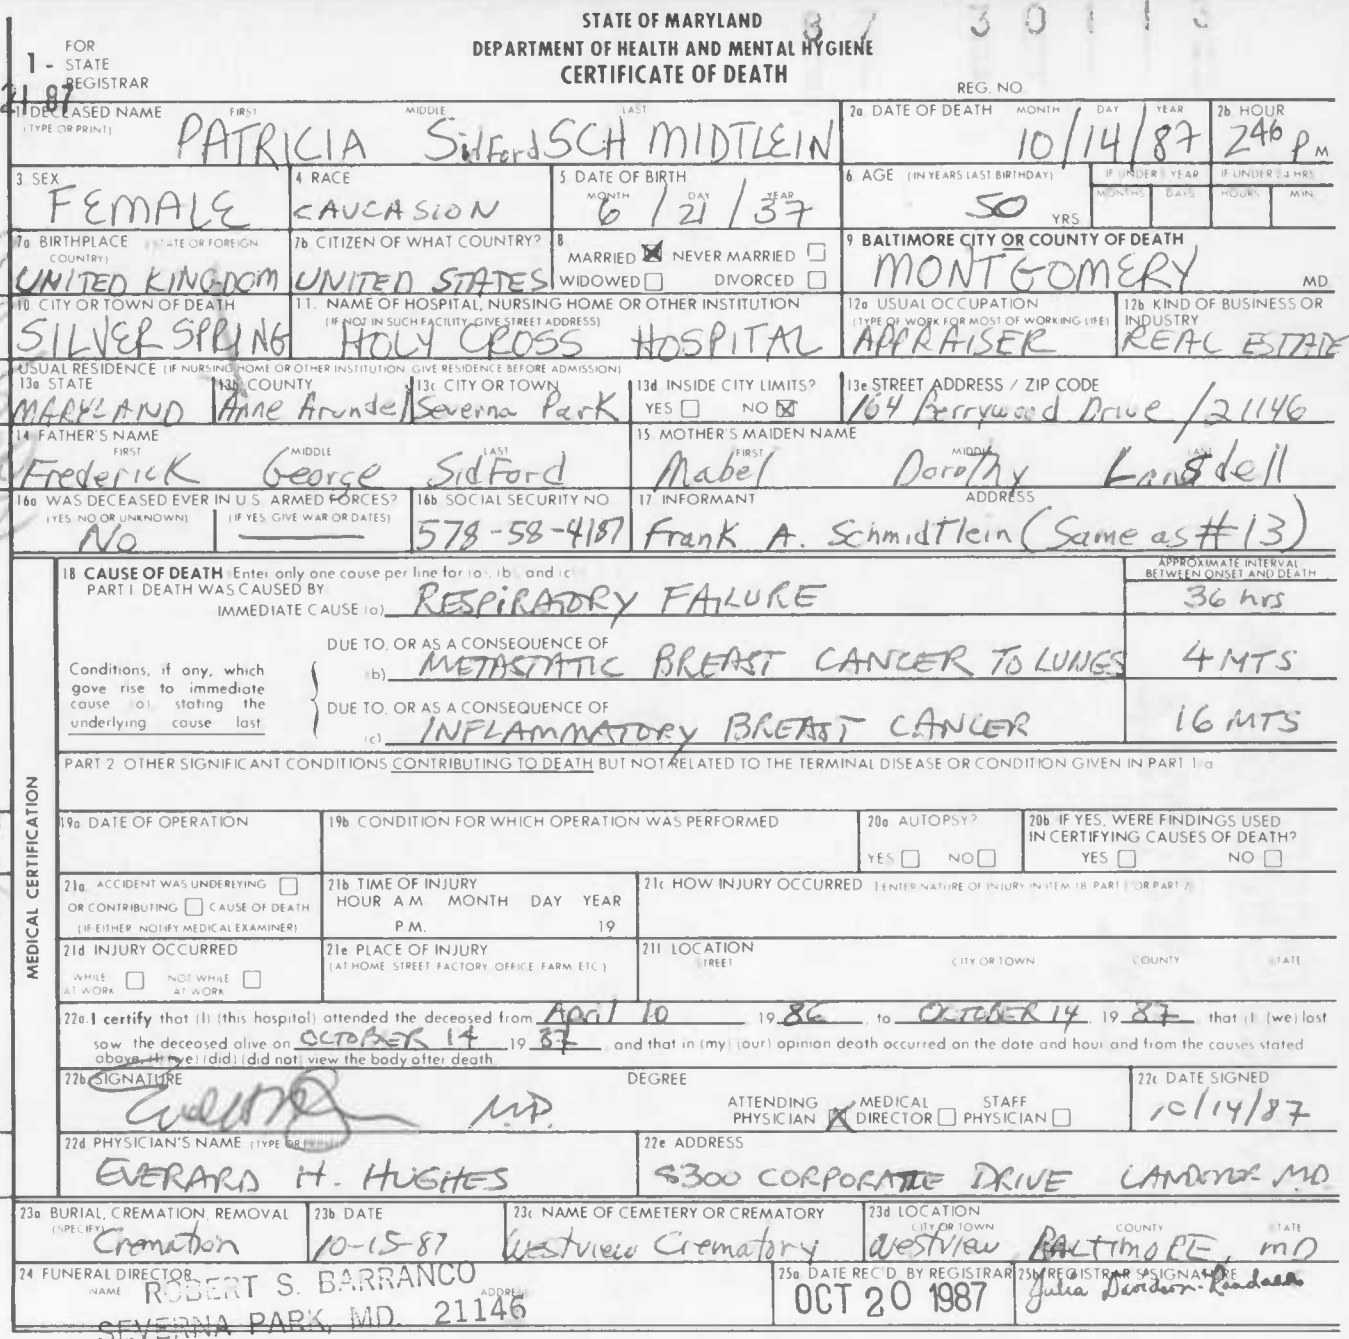 STATE OF MARYLAND
DEPARTMENT OF HEALTH AND MENTAL HYGIENE
CERTIFICATE OF DEATH
87 30113
1 - FOR STATE REGISTRAR
REG. NO.
21 87
1 DECEASED NAME (TYPE OR PRINT) FIRST MIDDLE LAST
PATRICIA Sidford SCHMIDTLEIN
2a DATE OF DEATH MONTH DAY YEAR
10/14/87
2b HOUR
2 46 P M
3 SEX
FEMALE
4 RACE
CAUCASION
5 DATE OF BIRTH MONTH DAY YEAR
6/21/37
6 AGE (IN YEARS LAST BIRTHDAY)
50 YRS
IF UNDER 1 YEAR MONTHS DAYS
IF UNDER 24 HRS HOURS MIN.
7a BIRTHPLACE (STATE OR FOREIGN COUNTRY)
UNITED KINGDOM
7b CITIZEN OF WHAT COUNTRY?
UNITED STATES
8 MARRIED NEVER MARRIED
WIDOWED DIVORCED
9 BALTIMORE CITY OR COUNTY OF DEATH
MONTGOMERY MD
10 CITY OR TOWN OF DEATH
SILVER SPRING
11. NAME OF HOSPITAL, NURSING HOME OR OTHER INSTITUTION
(IF NOT IN SUCH FACILITY, GIVE STREET ADDRESS)
HOLY CROSS HOSPITAL
12a USUAL OCCUPATION
(TYPE OF WORK FOR MOST OF WORKING LIFE)
APPRAISER
12b KIND OF BUSINESS OR INDUSTRY
REAL ESTATE
USUAL RESIDENCE (IF NURSING HOME OR OTHER INSTITUTION GIVE RESIDENCE BEFORE ADMISSION)
13a STATE
MARYLAND
13b COUNTY
Anne Arundel
13c CITY OR TOWN
Severna Park
13d INSIDE CITY LIMITS?
YES NO
13e STREET ADDRESS / ZIP CODE
164 Berrywood Drive / 21146
14 FATHER'S NAME FIRST MIDDLE LAST
Frederick George Sidford
15 MOTHER'S MAIDEN NAME FIRST MIDDLE LAST
Mabel Dorothy Lansdell
16a WAS DECEASED EVER IN U.S. ARMED FORCES?
(YES NO OR UNKNOWN) (IF YES GIVE WAR OR DATES)
No
16b SOCIAL SECURITY NO
578-58-4187
17 INFORMANT ADDRESS
Frank A. Schmidtlein (Same as #13)
18 CAUSE OF DEATH Enter only one cause per line for (a), (b), and (c)
PART I DEATH WAS CAUSED BY
APPROXIMATE INTERVAL BETWEEN ONSET AND DEATH
IMMEDIATE CAUSE (a) RESPIRATORY FAILURE 36 hrs
DUE TO, OR AS A CONSEQUENCE OF
(b) METASTATIC BREAST CANCER TO LUNGS 4 MTS
Conditions, if any, which gave rise to immediate cause (a) stating the underlying cause last
DUE TO, OR AS A CONSEQUENCE OF
(c) INFLAMMATORY BREAST CANCER 16 MTS
PART 2 OTHER SIGNIFICANT CONDITIONS CONTRIBUTING TO DEATH BUT NOT RELATED TO THE TERMINAL DISEASE OR CONDITION GIVEN IN PART 1 a
MEDICAL CERTIFICATION
19a DATE OF OPERATION
19b CONDITION FOR WHICH OPERATION WAS PERFORMED
20a AUTOPSY?
YES NO
20b IF YES, WERE FINDINGS USED IN CERTIFYING CAUSES OF DEATH?
YES NO
21a ACCIDENT WAS UNDERLYING
OR CONTRIBUTING CAUSE OF DEATH
(IF EITHER NOTIFY MEDICAL EXAMINER)
21b TIME OF INJURY
HOUR A.M. MONTH DAY YEAR
P.M. 19
21c HOW INJURY OCCURRED (ENTER NATURE OF INJURY IN ITEM 18 PART 1 OR PART 2)
21d INJURY OCCURRED
WHILE AT WORK NOT WHILE AT WORK
21e PLACE OF INJURY
(AT HOME STREET FACTORY, OFFICE FARM, ETC.)
21f LOCATION
STREET CITY OR TOWN COUNTY STATE
22a. I certify that (I) (this hospital) attended the deceased from April 10 19 86, to OCTOBER 14, 19 87 that (I) (we) last
saw the deceased alive on OCTOBER 14 19 87, and that in (my) (our) opinion death occurred on the date and hour and from the causes stated
above, (I) (we) (did) (did not) view the body after death
22b SIGNATURE DEGREE
M.D.
ATTENDING PHYSICIAN MEDICAL DIRECTOR STAFF PHYSICIAN
22c DATE SIGNED
10/14/87
22d PHYSICIAN'S NAME (TYPE OR PRINT)
EVERARD H. HUGHES
22e ADDRESS
8300 CORPORATE DRIVE LANDOVER MD
23a BURIAL, CREMATION, REMOVAL (SPECIFY)
Cremation
23b DATE
10-15-87
23c NAME OF CEMETERY OR CREMATORY
Westview Crematory
23d LOCATION CITY OR TOWN COUNTY STATE
Westview BALTIMORE, MD
24 FUNERAL DIRECTOR NAME ADDRESS
ROBERT S. BARRANCO
SEVERNA PARK, MD. 21146
25a DATE REC'D BY REGISTRAR
OCT 20 1987
25b REGISTRAR'S SIGNATURE
Julia Davidson-Randall